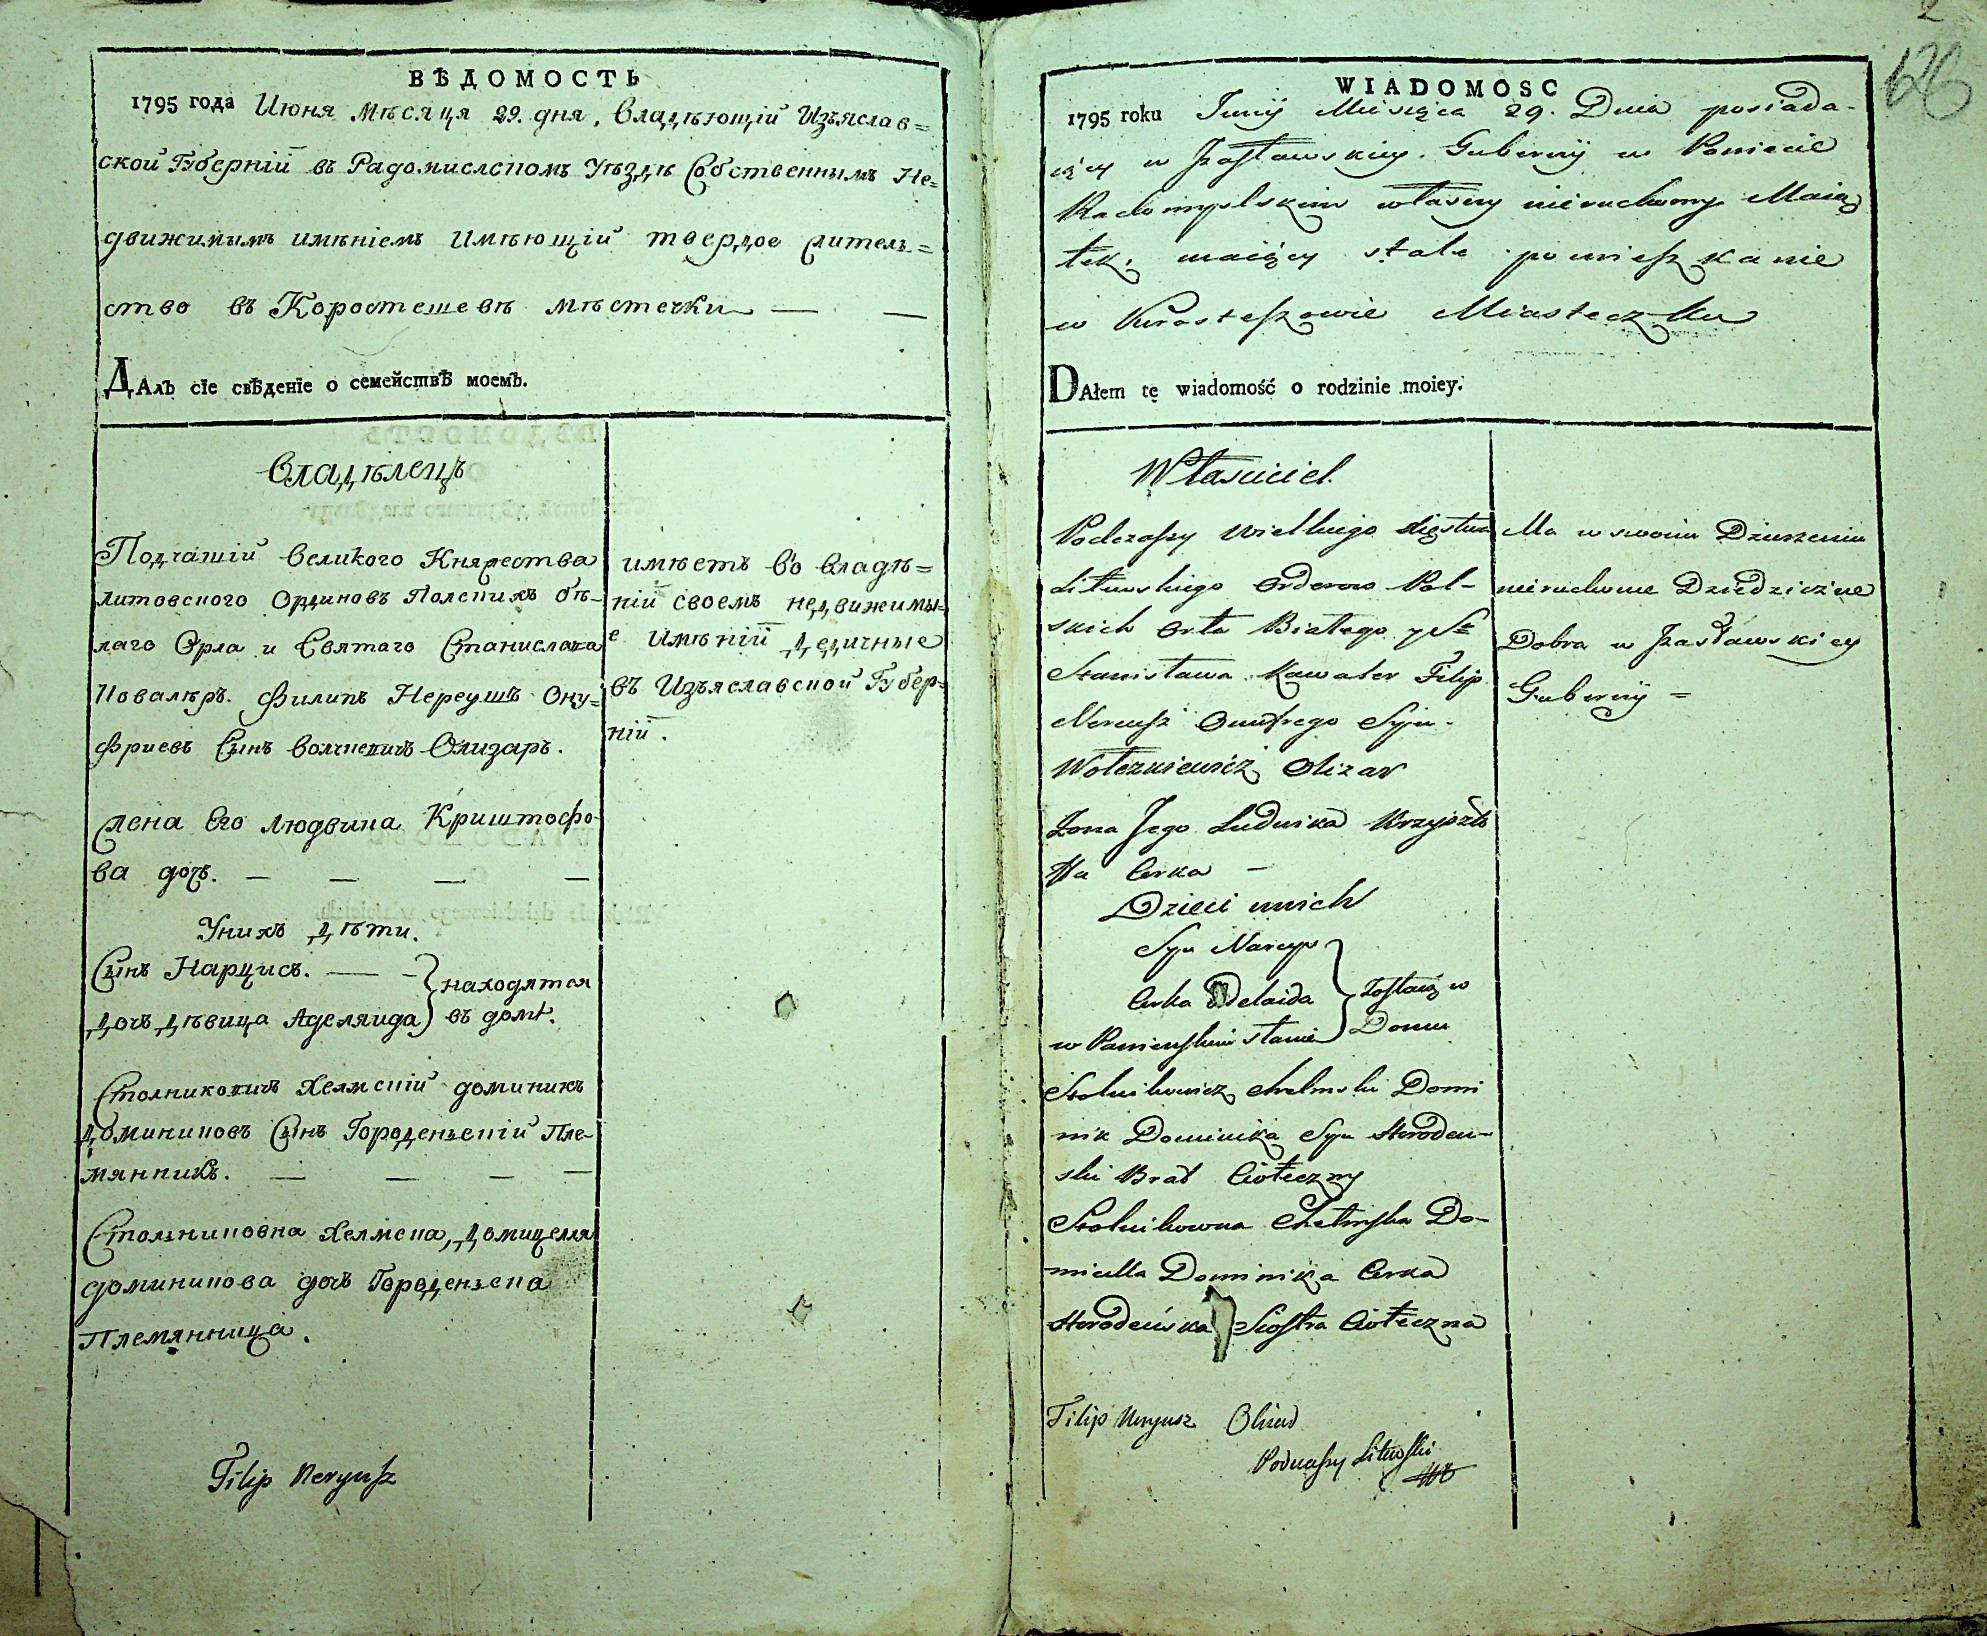 ВѢДОМОСТЬ
1795 года Июня мѣсяца 29. дня, Владѣющій Изъяслав=
ской Губерніи въ Радомислскомъ Уѣздѣ Собственнымъ Не=
движимымъ имѣніемъ имѣющій твердое житель=
ство въ Коростешевѣ мѣстечки
ДАлъ сіе свѣденіе о семействѣ моемъ.
Владѣлецъ
Подчашій Великого Княжества
Литовского Ординовъ Полскихъ бѣ-
лаго Орла и Святаго Станислава
Ковалѣръ. Филипъ Нереушъ Ону=
фриевъ Сынъ Волчкевичъ Олизаръ.
Жена Его Людвика Криштофо-
ва дочъ.
У нихъ дѣти.
Сынъ Нарцисъ.
Дочъ дѣвица Аделяида
находятся
въ домѣ.
Столниковичъ Хелмскій доминикъ
Доминиковъ Сынъ Городенскій Пле-
мянникъ.
Столниковна Хелмска, Домицелля
доминикова дочъ Городенска
Племянница.
Filip Neryusz
имѣетъ во владѣ=
ніи своемъ недвижимы=
е имѣніи Дедичные
въ Изъяславской Губер=
ніи.
2
126
WIADOMOSC
1795 roku Junij Miesiąca 29. Dnia posiada-
iący w Jzasławskiey Guberny w Powiecie
Radomyslskim własny nieruchomy Maią
tek, maiący stałe pomieszkanie
w Korosteszowie Miasteczku
DAłem tę wiadomość o rodzinie moiey.
Własciciel.
Podczaszy Wielkiego Xięstwa
Litewskiego Orderow Pol-
skich Orła Białego y S
Stanisława Kawaler Filip
Nereusz Onufrego Syn
Wołczkiewicz Olizar
Zona Jego Ludwika Krzyszto
ffa Corka
Dzieci u nich
Syn Narcyz
Corka Adelaida
w Panienskim stanie
Zostaią w
Domu
Stolnikowicz Chelmski Domi
nik Dominika Syn Horoden-
ski Brat Cioteczny
Stolnikowna Chełmska Do-
micella Dominika Corka
Horodeńska Siostra Cioteczna
Filip Neryusz Olizar
Podczaszy Litewski
Ma w swoim Dzierzeniu
nieruchome Dziedziczne
Dobra w Jzasławskiey
Guberny =